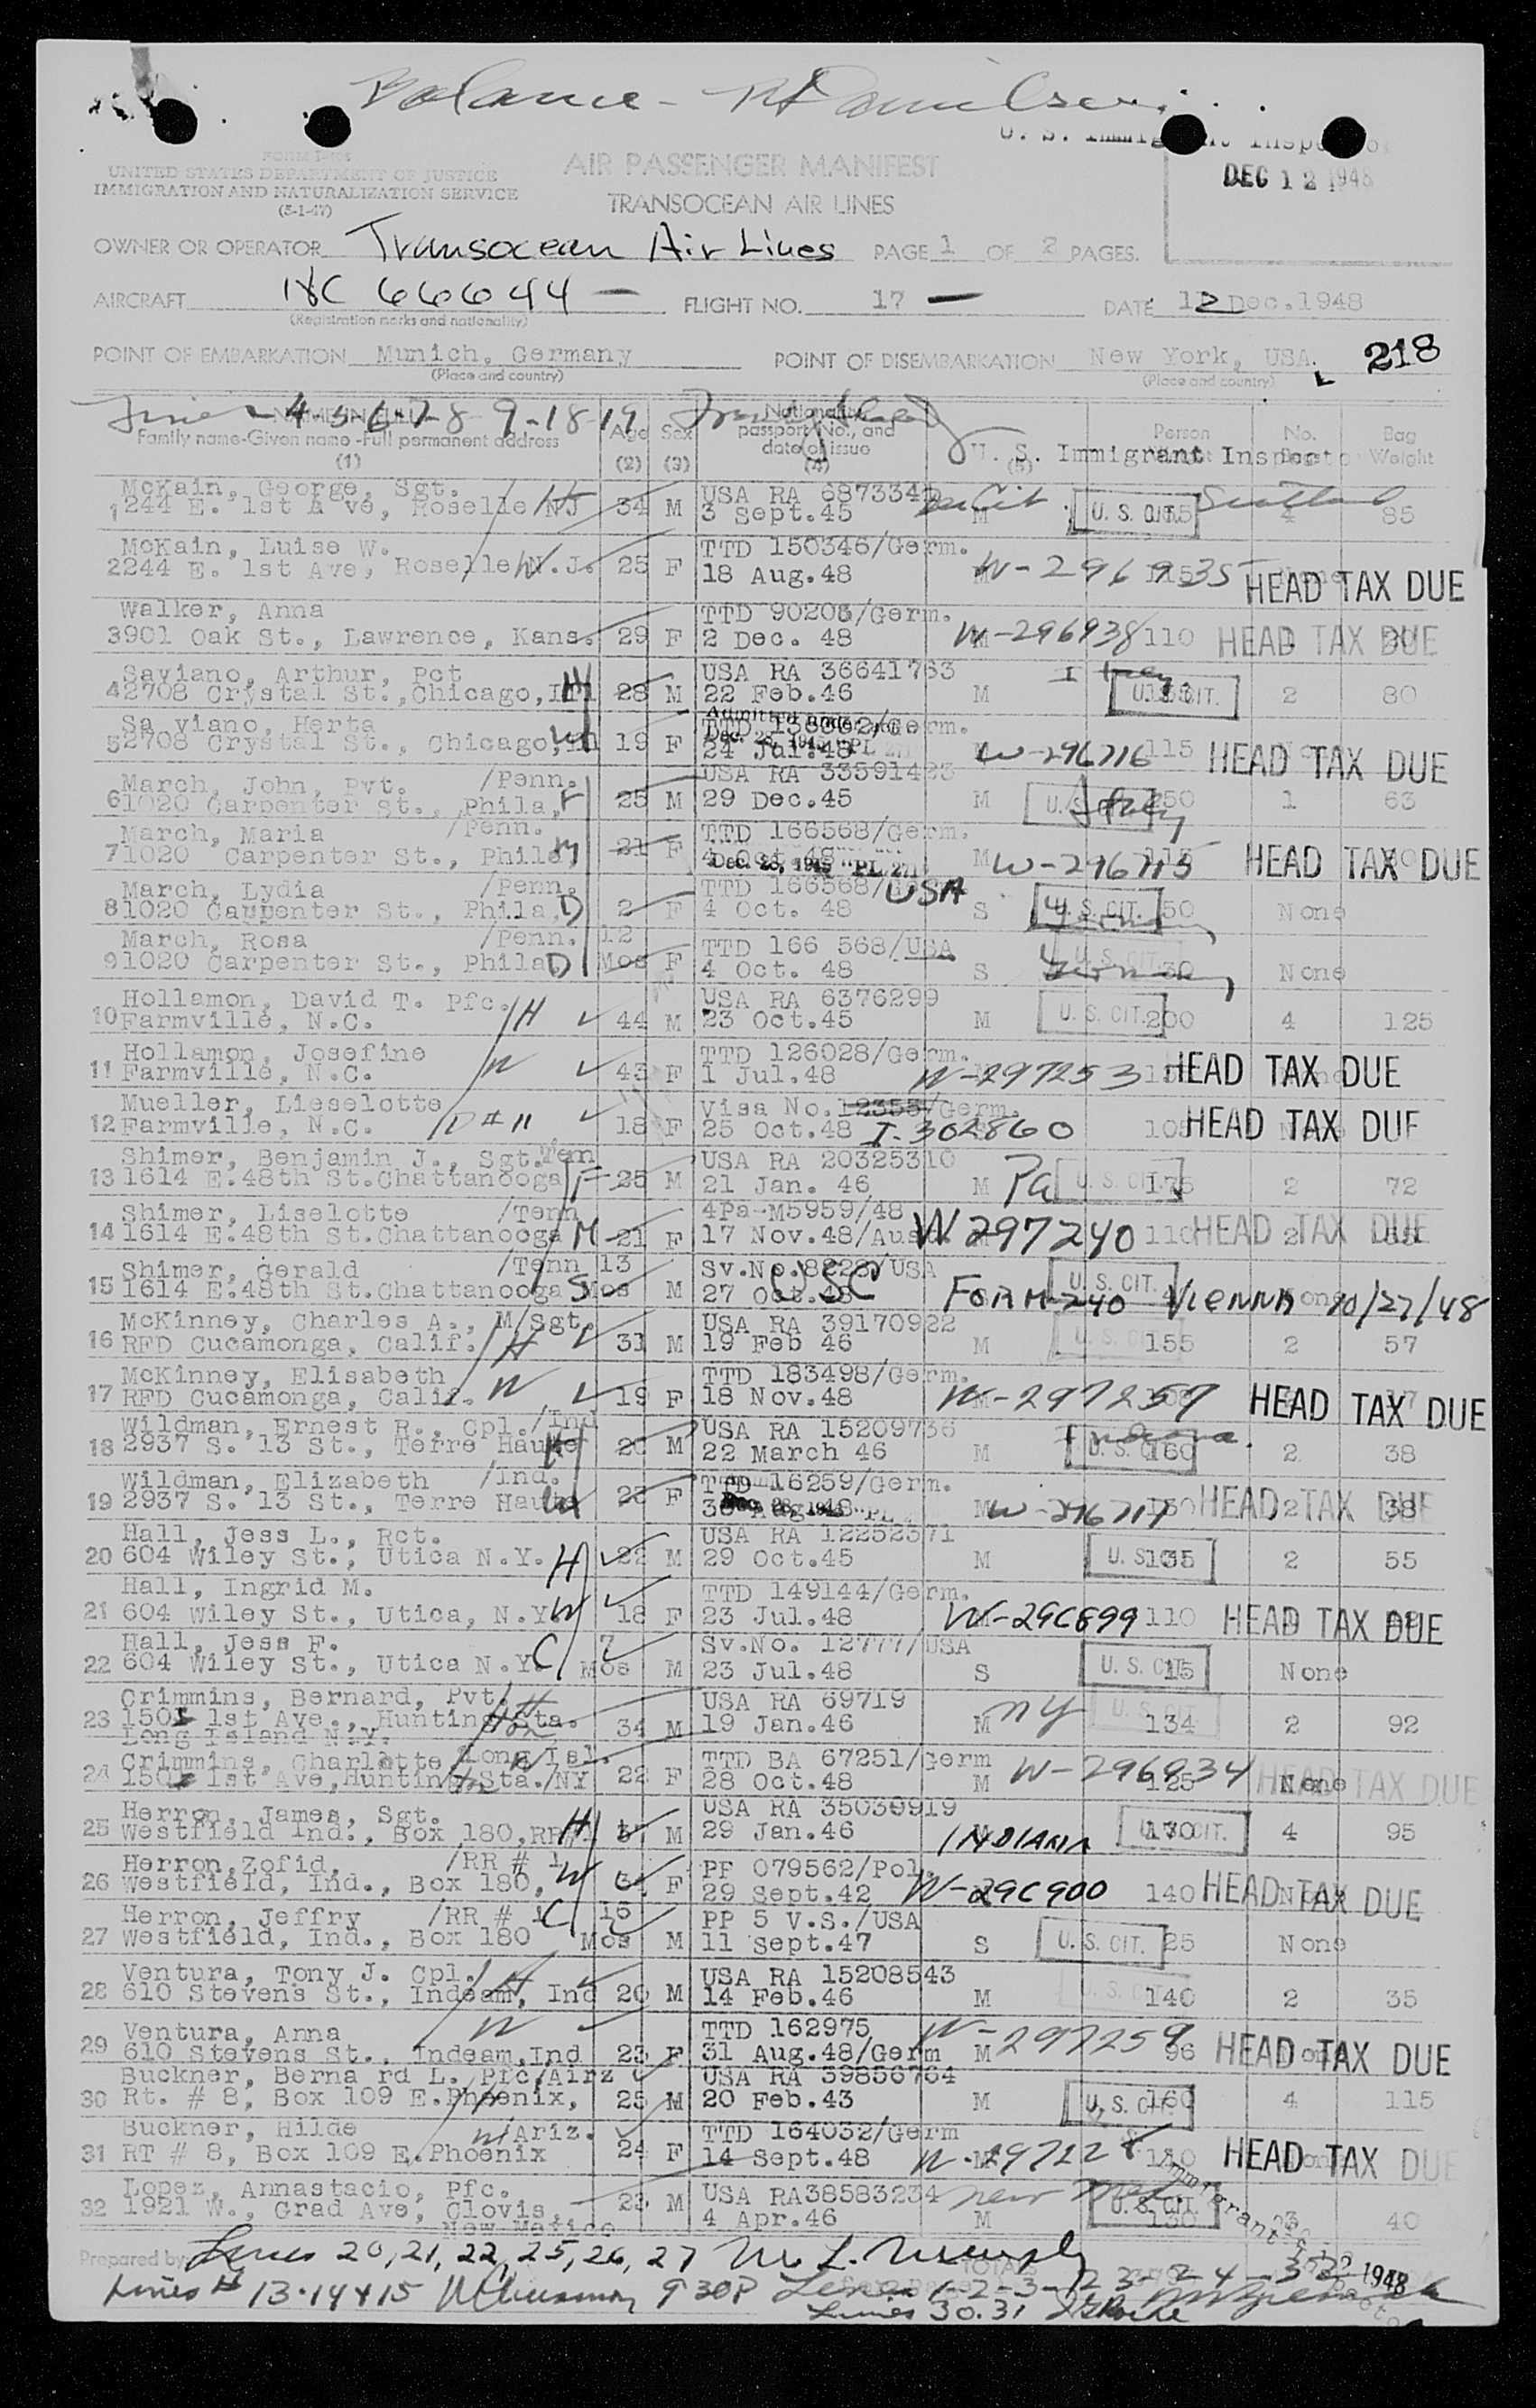 Balance -
U. S. Immigrant Inspector
DEC 12 1948
FORM I-
UNITED STATES DEPARTMENT OF JUSTICE
IMMIGRATION AND NATURALIZATION SERVICE
(5-1-47)
AIR PASSENGER MANIFEST
TRANSOCEAN AIR LINES
OWNER OR OPERATOR Transocean Air Lines PAGE 1 OF 2 PAGES.
AIRCRAFT NC 66644 — FLIGHT NO. 17 — DATE 12 Dec.1948
(Registration marks and nationality)
POINT OF EMBARKATION Munich, Germany POINT OF DISEMBARKATION New York, USA. 218
(Place and country) (Place and country)
Lines 4 5 6 7 8 9-18 19
NAME IN FULL Age Sex Nationality Person No. Bag
Family name-Given name-Full permanent address passport No., and date of issue U. S. Immigrant Inspector Weight
(1) (2) (3) (4) (5)
McKain, George, Sgt. USA RA 6873341
1 244 E. 1st A ve, Roselle NJ H 34 M 3 Sept.45 M U. S. CIT. 4 85
McKain, Luise W. TTD 150346/Germ.
2 244 E. 1st Ave, Roselle N.J. W 25 F 18 Aug.48 M W-296935 115 None HEAD TAX DUE
Walker, Anna TTD 90206/Germ.
3 3901 Oak St., Lawrence, Kans. 29 F 2 Dec. 48 M W-296938 110 HEAD TAX DUE
Saviano, Arthur, Pct USA RA 36641763
4 2708 Crystal St.,Chicago,Ill H 28 M 22 Feb.46 M U.S. CIT. 2 80
Sa viano, Herta Admitted under TTD /Germ.
5 2708 Crystal St., Chicago, W 19 F 24 Jul.48 Dec. 28, 1945 "PL 271 W-296716 115 HEAD TAX DUE
March, John, Pvt. /Penn. USA RA 33591423
6 1020 Carpenter St., Phila, F 25 M 29 Dec.45 M U.S. 250 1 63
March, Maria /Penn. TTD 166568/Germ.
7 1020 Carpenter St., Phila M 21 F 4 Oct.48 Dec. 28, 1945 "PL 271 M W-296715 HEAD TAX DUE
March, Lydia /Penn. TTD 166568/ USA
8 1020 Carpenter St., Phila, D 2 F 4 Oct. 48 S U. S. CIT. 50 None
March, Rosa /Penn. 12 TTD 166 568/USA
9 1020 Carpenter St., Phila D Mos F 4 Oct. 48 S U. S. CIT. 30 None
Hollamon, David T. Pfc. USA RA 6376299
10 Farmville, N.C. H 44 M 23 Oct.45 M U. S. CIT. 200 4 125
Hollamon, Josefine TTD 126028/Germ.
11 Farmville, N.C. W 43 F 1 Jul.48 W-297253 HEAD TAX DUE
Mueller, Lieselotte Visa No.12355/Germ.
12 Farmville, N.C. D#11 18 F 25 Oct.48 I-302860 105 HEAD TAX DUE
Shimer, Benjamin J., Sgt. Tenn USA RA 20325310
13 1614 E.48th St.Chattanooga F 25 M 21 Jan. 46 M Pa U. S. CIT. 175 2 72
Shimer, Liselotte /Tenn 4Pa-M5959/48
14 1614 E.48th St.Chattanooga M 21 F 17 Nov.48/Aust. W 297240 110 2 HEAD TAX DUE
Shimer, Gerald /Tenn 13 Sv.No.8228/USA
15 1614 E.48th St.Chattanooga S Mos M 27 Oct.48 USC U. S. CIT. FORM-240 VIENNA 10/27/48
McKinney, Charles A., M/Sgt. USA RA 39170922
16 RFD Cucamonga, Calif. H 31 M 19 Feb 46 M U. S. 155 2 57
McKinney, Elisabeth TTD 183498/Germ.
17 RFD Cucamonga, Calif. W 19 F 18 Nov.48 W-297257 HEAD TAX DUE
Wildman, Ernest R., Cpl./Ind USA RA 15209736
18 2937 S. 13 St., Terre Haute H 20 M 22 March 46 M Indiana. U. S. 160 2 38
Wildman, Elizabeth /Ind. TTD 16259/Germ.
19 2937 S. 13 St., Terre Haute W 23 F 30 Aug.48 Dec. 28, 1945 "PL W-296717 130 2 38 HEAD TAX DUE
Hall, Jess L., Rct. USA RA 12252371
20 604 Wiley St., Utica N.Y. H 22 M 29 Oct.45 M U. S. 135 2 55
Hall, Ingrid M. TTD 149144/Germ.
21 604 Wiley St., Utica, N.Y. W 18 F 23 Jul.48 W-29C899 110 HEAD TAX DUE
Hall, Jess F. C 7 Sv.No. 12777/USA
22 604 Wiley St., Utica N.Y. Mos M 23 Jul.48 S U. S. CIT 15 None
Crimmins, Bernard, Pvt. H USA RA 69719
23 150 1st Ave., Hunting Sta. 34 M 19 Jan.46 M NY U. S. CIT 134 2 92
Long Island N.Y.
Crimmins, Charlotte /Long Isl. W TTD BA 67251/Germ
24 150 1st Ave,Hunting Sta./NY 22 F 28 Oct.48 M W-296934 125 None HEAD TAX DUE
Herron, James, Sgt. USA RA 35030919
25 Westfield Ind., Box 180,RR# H M 29 Jan.46 INDIANA U. S. CIT. 170 4 95
Herron,Zofid, /RR # 1 PP 079562/Pol.
26 Westfield, Ind., Box 180, W F 29 Sept.42 W-29C900 140 HEAD TAX DUE
Herron, Jeffry /RR # 1 C 16 PP 5 V.S./USA
27 Westfield, Ind., Box 180 Mos M 11 Sept.47 S U. S. CIT. 25 None
Ventura, Tony J. Cpl. H USA RA 15208543
28 610 Stevens St., Indeam, Ind 20 M 14 Feb.46 M U. S. CIT 140 2 35
Ventura, Anna W TTD 162975
29 610 Stevens St., Indeam,Ind 23 F 31 Aug.48/Germ M W-297259 96 HEAD TAX DUE
Buckner, Berna rd L. Pfc/Airz USA RA 39856764
30 Rt. # 8, Box 109 E.Phoenix, H 25 M 20 Feb.43 M U. S. CIT 160 4 115
Buckner, Hilde W /Ariz. TTD 164032/Germ
31 RT # 8, Box 109 E.Phoenix 24 F 14 Sept.48 HEAD TAX DUE
Lopez, Annastacio, Pfc. USA RA38583234
32 1921 W., Grad Ave, Clovis, 23 M 4 Apr.46 M New Mex. U. S. CIT. 130 3 40
New Mexico
Prepared by Lines 20, 21, 22, 25, 26, 27 M. L. TOTALS 1948
Lines # 13.14+15 930P Lines 1-2-3-
Lines 30.31